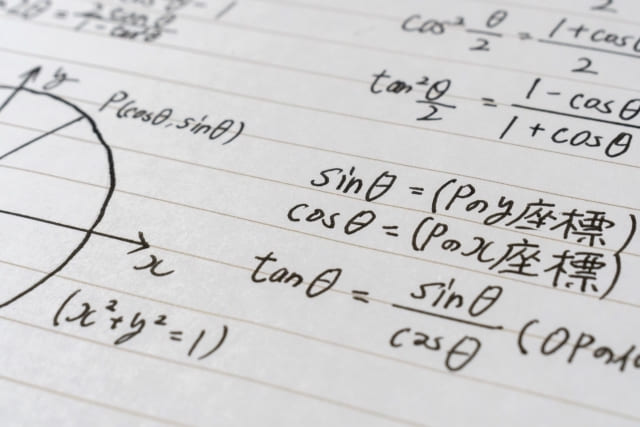 cos² θ/2 = 1+cosθ/2
tan² θ/2 = 1-cosθ/1+cosθ
y
P(cosθ, sinθ)
x
(x²+y²=1)
sinθ = (Pのy座標)
cosθ = (Pのx座標)
tanθ = sinθ/cosθ (OPの